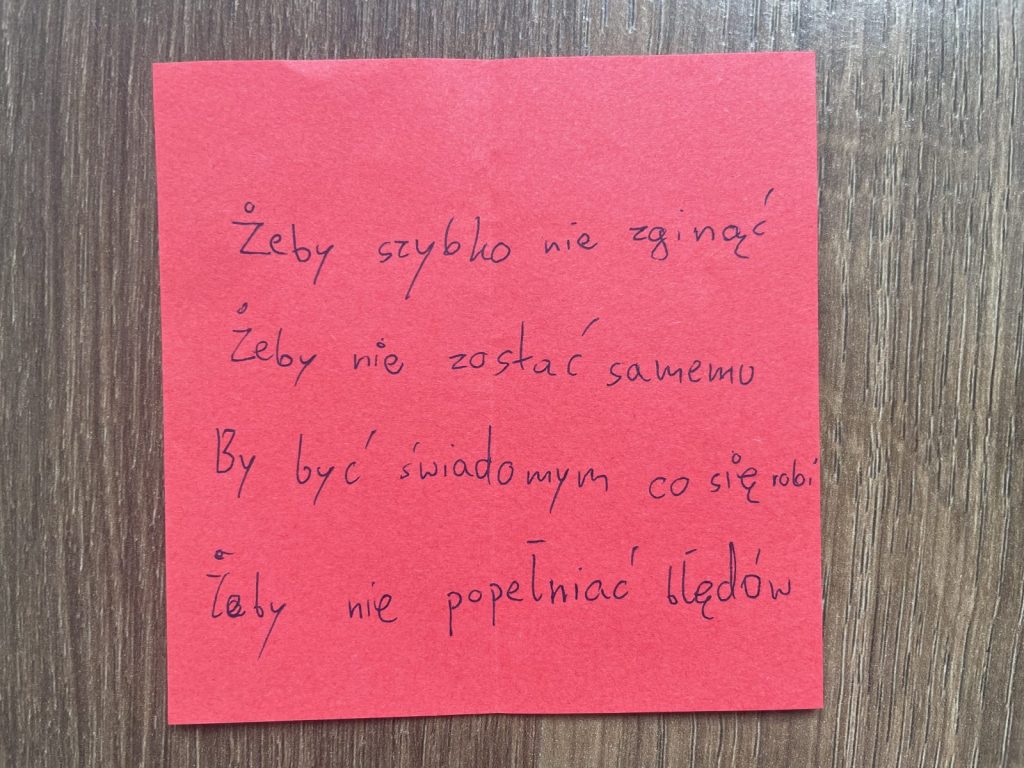 Żeby szybko nie zginąć
Żeby nie zostać samemu
By być świadomym co się robi
Żeby nie popełniać błędów